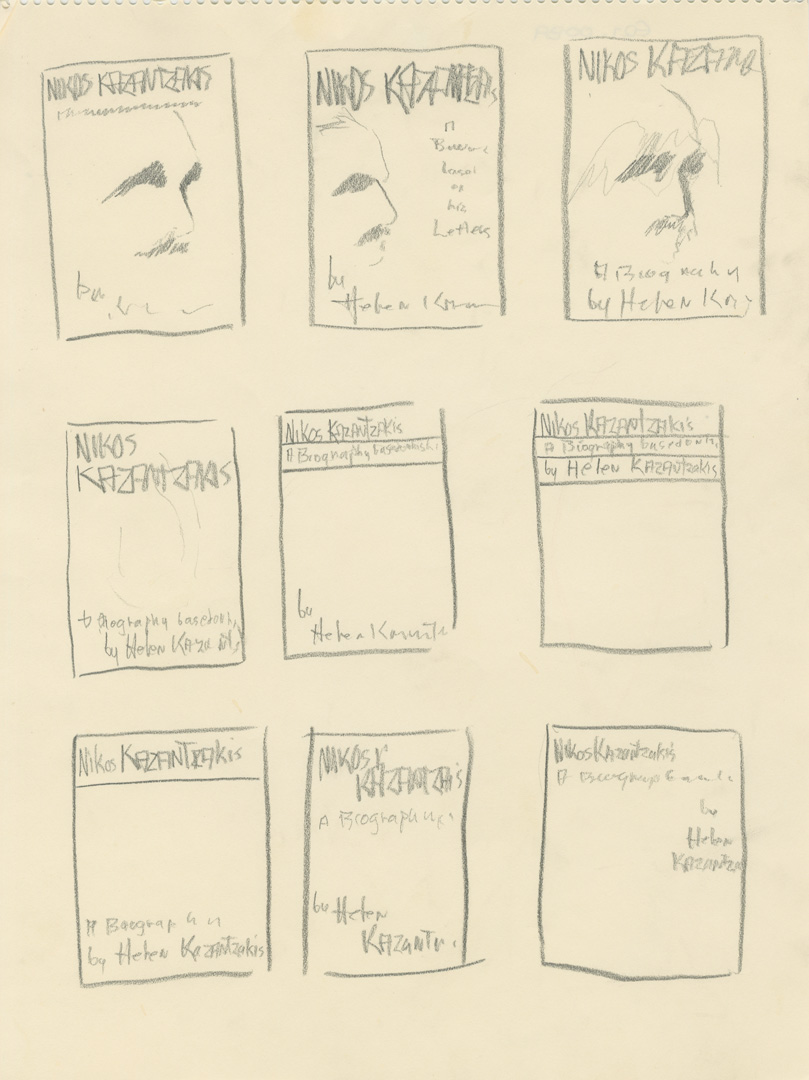 NIKOS KAZANTZAKIS
by
NIKOS KAZANTZAKIS
A
based
on
his
Letters
by
Helen
NIKOS KAZANTZ
A Biography
by Helen Kaz
NIKOS
KAZANTZAKIS
A Biography based on h
by Helen Kazant
Nikos Kazantzakis
A Biography based on his
by
Helen Kazantz
Nikos Kazantzakis
A Biography based on h
by Helen Kazantzakis
Nikos Kazantzakis
A Biography
by Helen Kazantzakis
NIKOS K
KAZANTZAKIS
A Biography
by Helen
Kazantz
Nikos Kazantzakis
A Biography
by
Helen
Kazantza